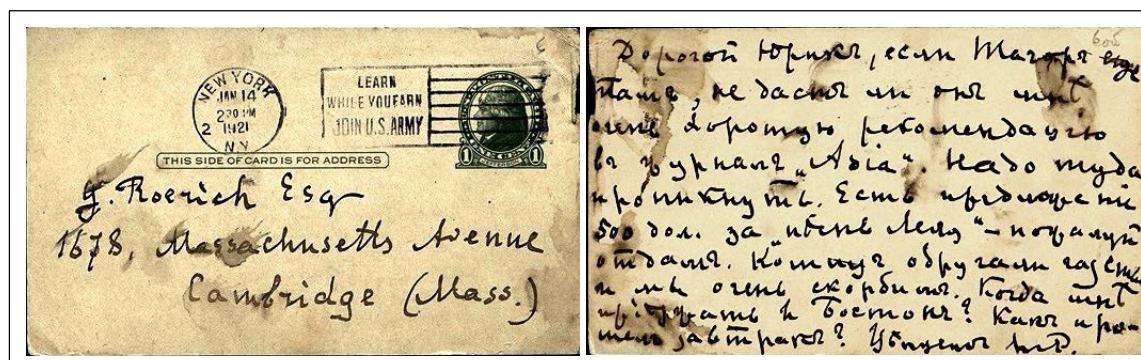 6
NEW YORK
JAN 14
2 30 PM
1921
2
N.Y.
LEARN
WHILE YOU EARN
JOIN U.S. ARMY
THIS SIDE OF CARD IS FOR ADDRESS
1 1
G. Roerich Esq
1678, Massachusetts Avenue
Cambridge (Mass.)
6об
Дорогой Юрикъ, если Тагоръ еще
тамъ, не дастъ ли онъ мнѣ
очень хорошую рекомендацію
въ журналъ „Asia“. Надо туда
проникнуть. Есть предложеніе
500 дол. за „пѣснь Леля“ – пожалуй
отдамъ. обругали газеты
и мы очень скорбимъ. Когда мнѣ
пріѣзжать въ Бостонъ? Какъ про-
шелъ завтракъ? Цѣлуемъ